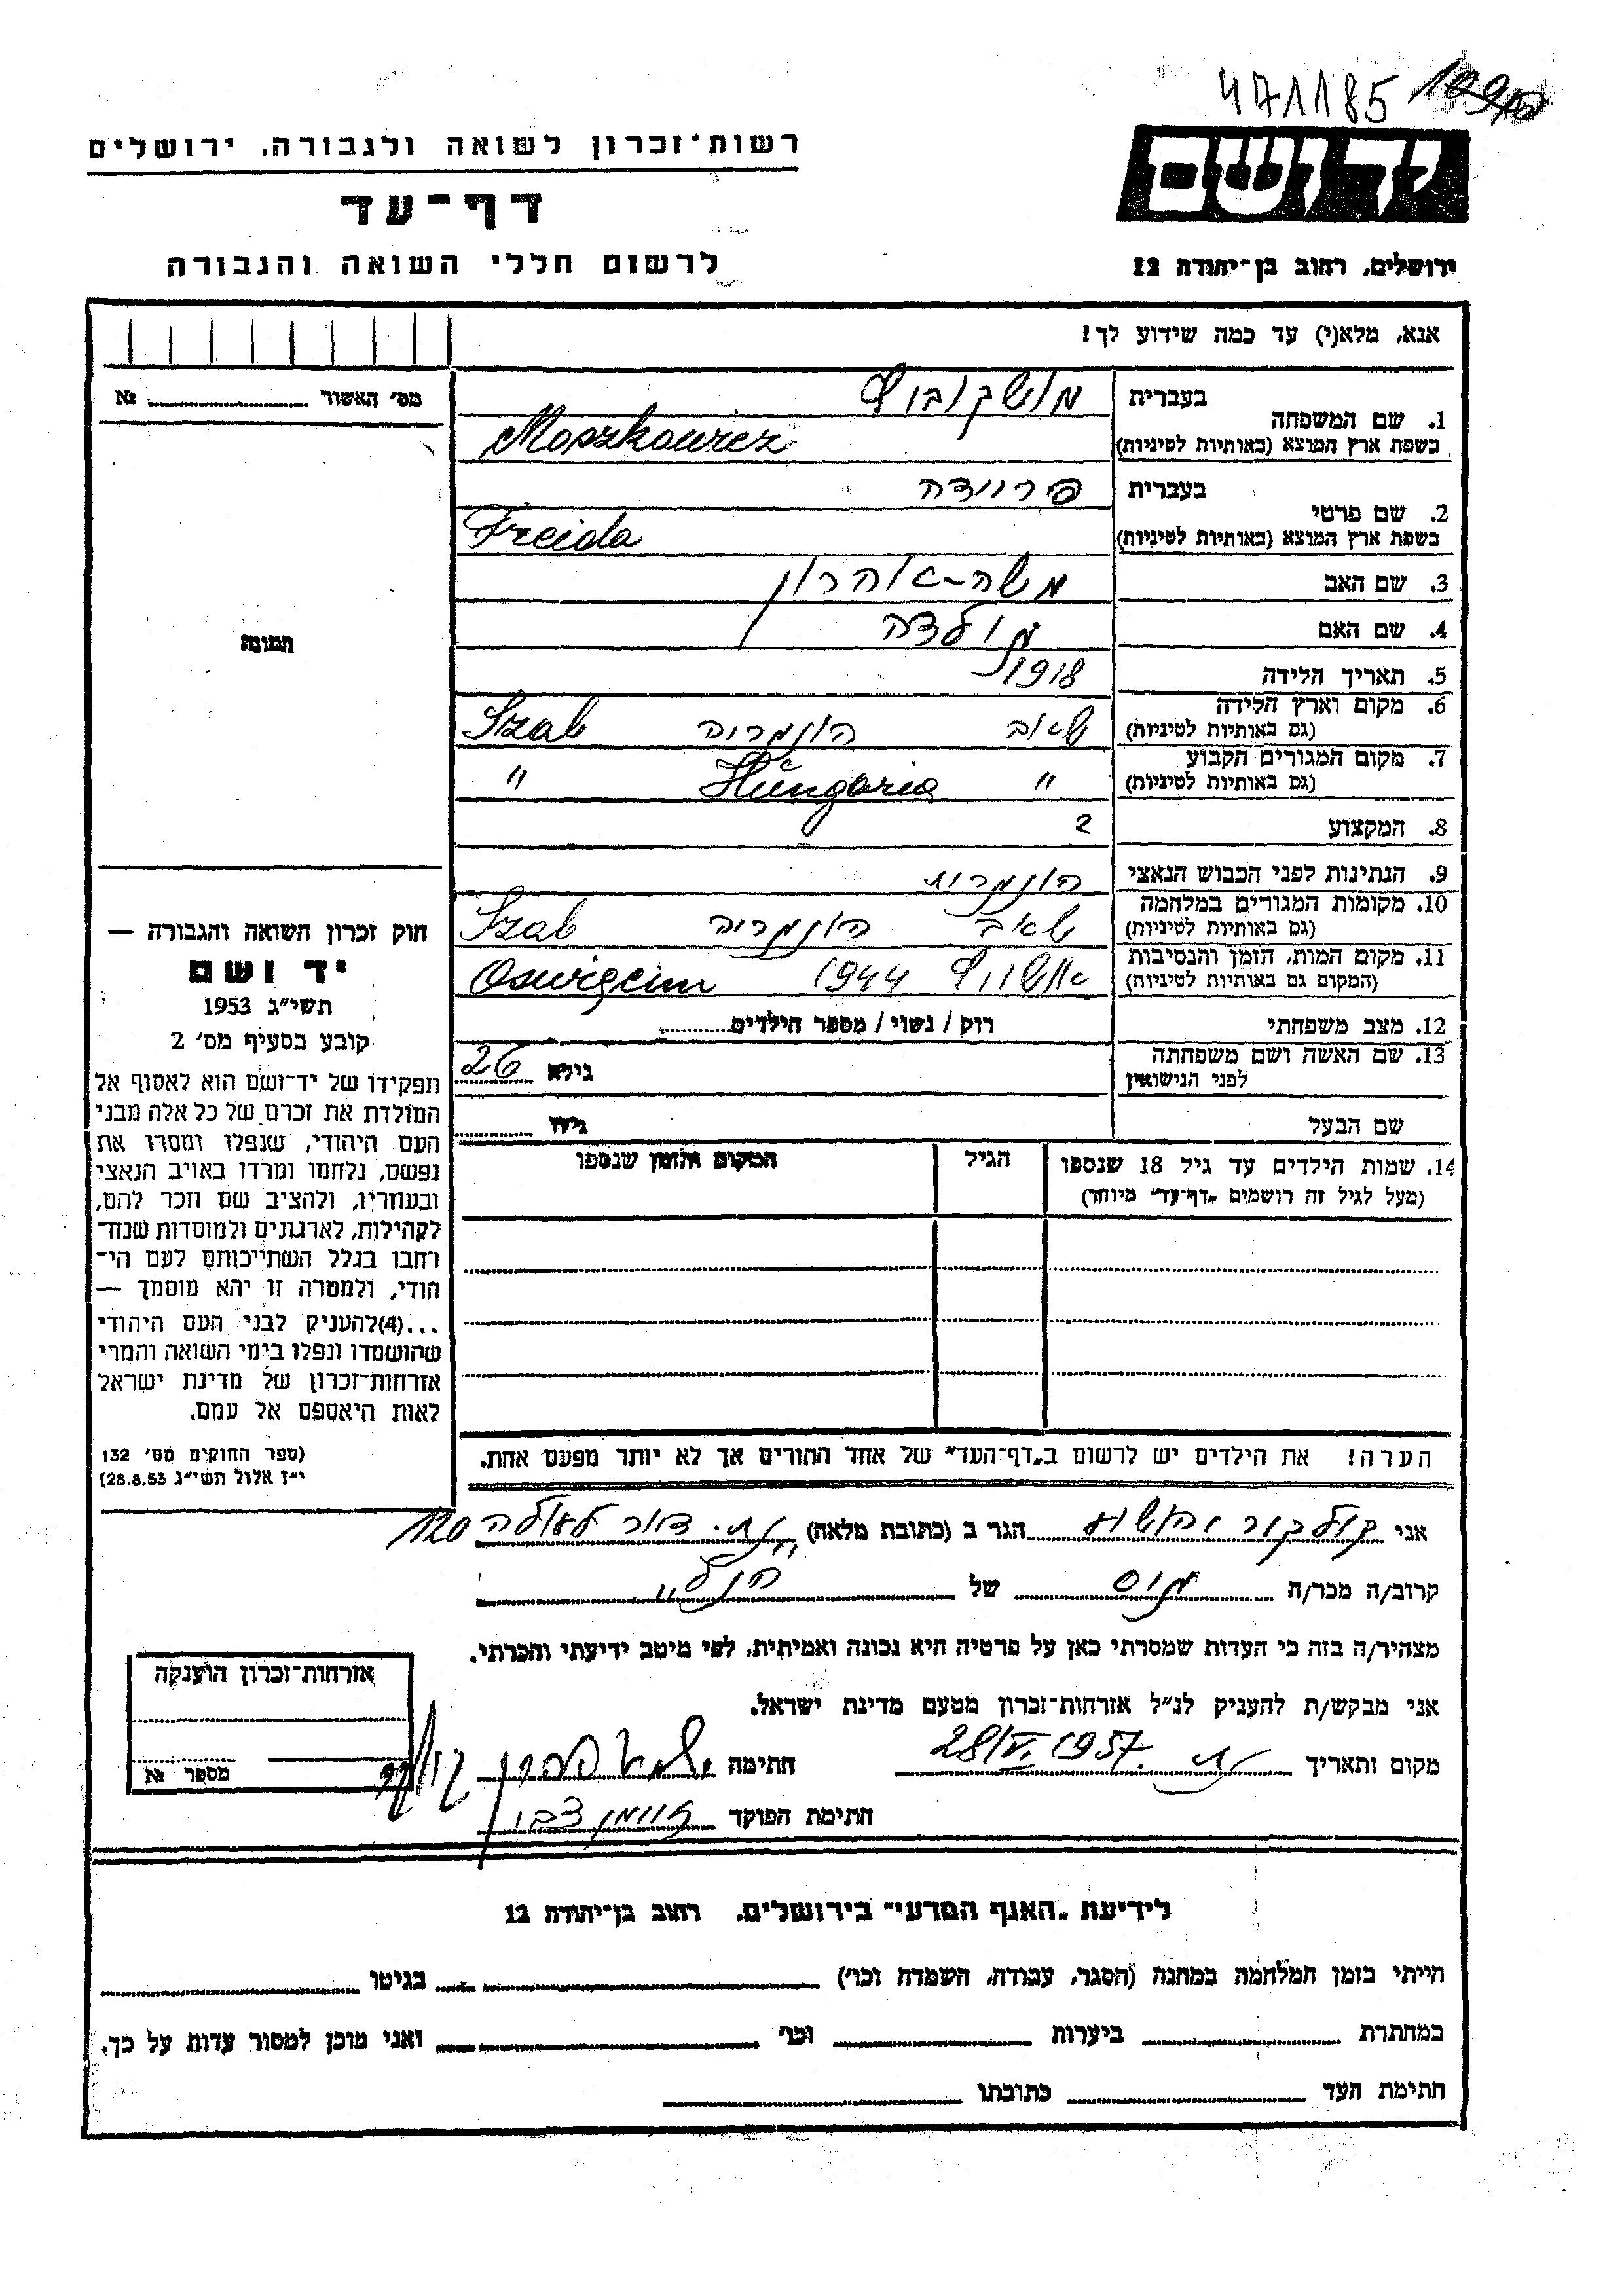 471185
יד ושם
ירושלים, רחוב בן־יהודה 12
רשות־זכרון לשואה ולגבורה, ירושלים
דף־עד
לרשום חללי השואה והגבורה
אנא, מלא(י) עד כמה שידוע לך!
מס׳ האשור № 
1. שם המשפחה
בעברית מושקוביץ
בשפת ארץ המוצא (באותיות לטיניות) Moszkowicz
2. שם פרטי
בעברית פריידה
בשפת ארץ המוצא (באותיות לטיניות) Freida
3. שם האב משה־אהרון
4. שם האם
5. תאריך הלידה 1918
6. מקום וארץ הלידה
(גם באותיות לטיניות) סאב הונגריה Szab
7. מקום המגורים הקבוע
(גם באותיות לטיניות) " Hungaria "
8. המקצוע ?
9. הנתינות לפני הכבוש הנאצי הונגרית
10. מקומות המגורים במלחמה
(גם באותיות לטיניות) סאב הונגריה Szab
11. מקום המות, הזמן והנסיבות
(המקום גם באותיות לטיניות) אושויץ 1944 Oswigcim
12. מצב משפחתי רוק / נשוי / מספר הילדים
13. שם האשה ושם משפחתה
לפני הנישואין גילא 26
שם הבעל גילו
14. שמות הילדים עד גיל 18 שנספו הגיל המקום והזמן שנספו
(מעל לגיל זה רושמים „דף־עד” מיוחד)
הערה! את הילדים יש לרשום ב„דף־העד” של אחד ההורים אך לא יותר מפעם אחת.
תמונה
חוק זכרון השואה והגבורה —
יד ושם
תשי״ג 1953
קובע בסעיף מס׳ 2
תפקידו של יד־ושם הוא לאסוף אל
המולדת את זכרם של כל אלה מבני
העם היהודי, שנפלו ומסרו את
נפשם, נלחמו ומרדו באויב הנאצי
ובעוזריו, ולהציב שם וזכר להם,
לקהילות, לארגונים ולמוסדות שנח־
רבו בגלל השתייכותם לעם הי־
הודי, ולמטרה זו יהא מוסמך —
...(4)להעניק לבני העם היהודי
שהושמדו ונפלו בימי השואה והמרי
אזרחות־זכרון של מדינת ישראל
לאות היאספם אל עמם.
(ספר החוקים מס׳ 132
י״ז אלול תשי״ג 28.8.53)
אני יהושע הגר ב (כתובת מלאה) 120
קרוב/ה מכר/ה גיס של הנ״ל
מצהיר/ה בזה כי העדות שמסרתי כאן על פרטיה היא נכונה ואמיתית, לפי מיטב ידיעתי והכרתי.
אני מבקש/ת להעניק לנ״ל אזרחות־זכרון מטעם מדינת ישראל.
מקום ותאריך 28/VI. 1957 חתימה
חתימת הפוקד
אזרחות־זכרון הוענקה
מספר №
לידיעת „האגף המדעי” בירושלים, רחוב בן־יהודה 12
הייתי בזמן המלחמה במחנה (הסגר, עבודה, השמדה וכו׳) בגיטו
במחתרת ביערות וכו׳ ואני מוכן למסור עדות על כך.
חתימת העד כתובתו